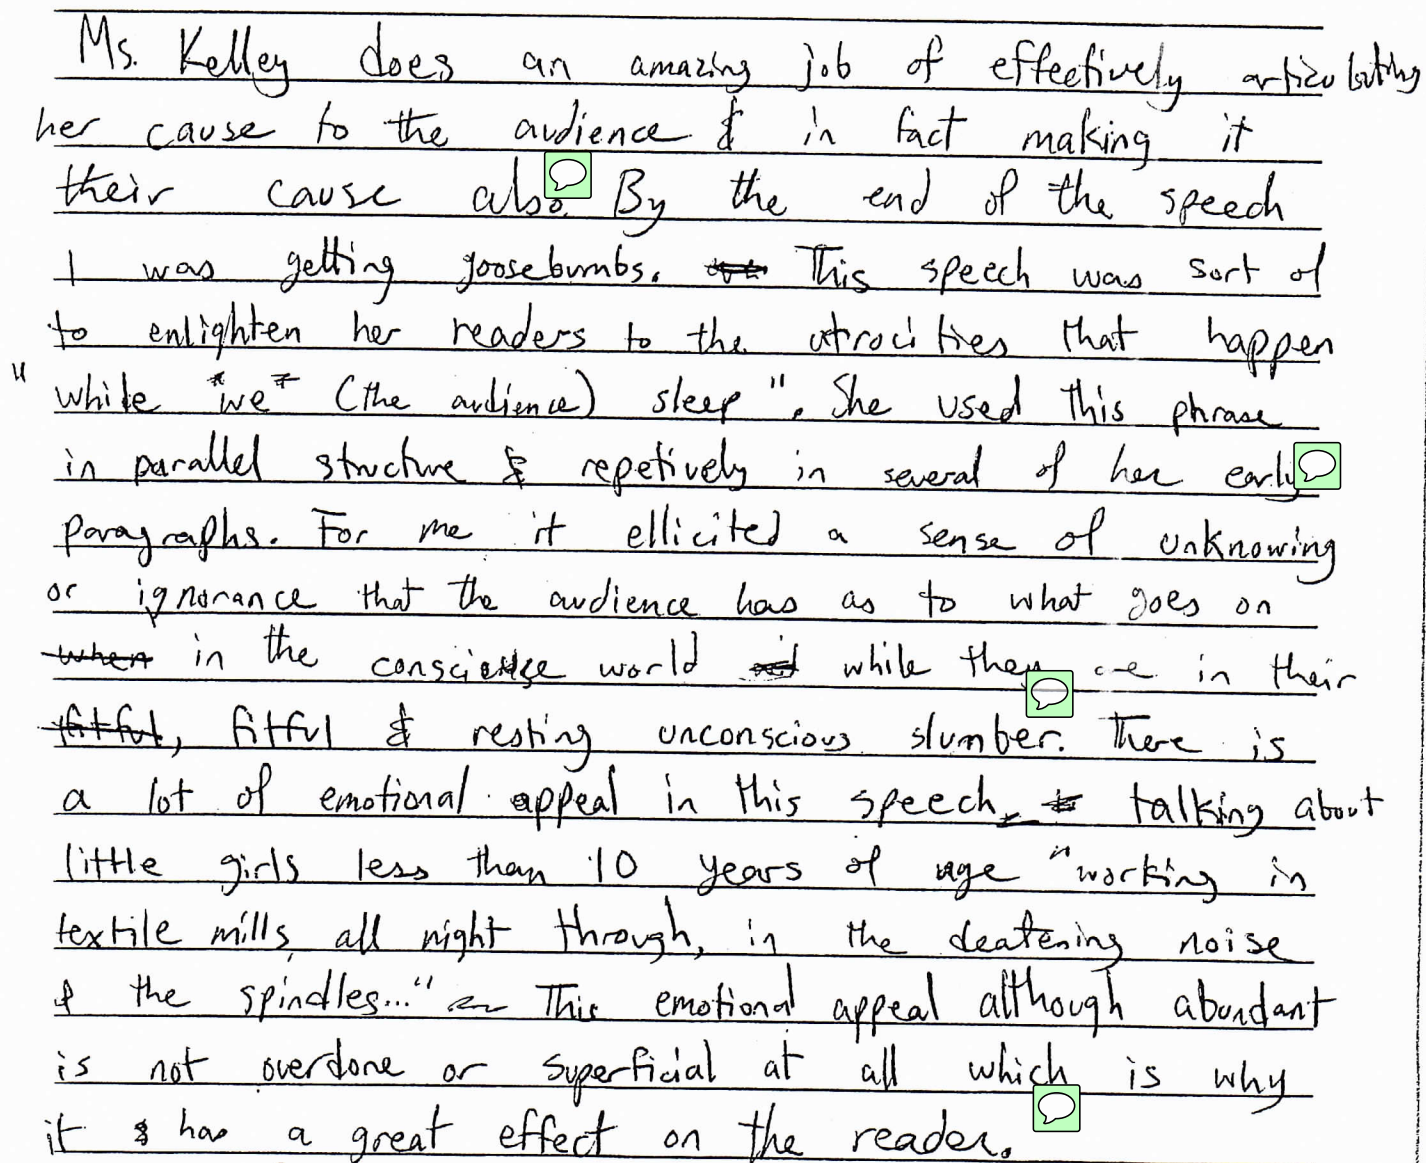 Ms. Kelley does an amazing job of effectively articulating
her cause to the audience & in fact making it
their cause also. By the end of the speech
I was getting goosebumbs. This speech was sort of
to enlighten her readers to the atrocities that happen
"while "we" (the audience) sleep". She used this phrase
in parallel structure & repetively in several of her early
paragraphs. For me it ellicited a sense of unknowing
or ignorance that the audience has as to what goes on
when in the conscience world and while they are in their
fitful, fitful & resting unconscious slumber. There is
a lot of emotional appeal in this speech, talking about
little girls less than 10 years of age "working in
textile mills, all night through, in the deafening noise
& the spindles..." This emotional appeal although abundant
is not overdone or superficial at all which is why
it has a great effect on the reader.